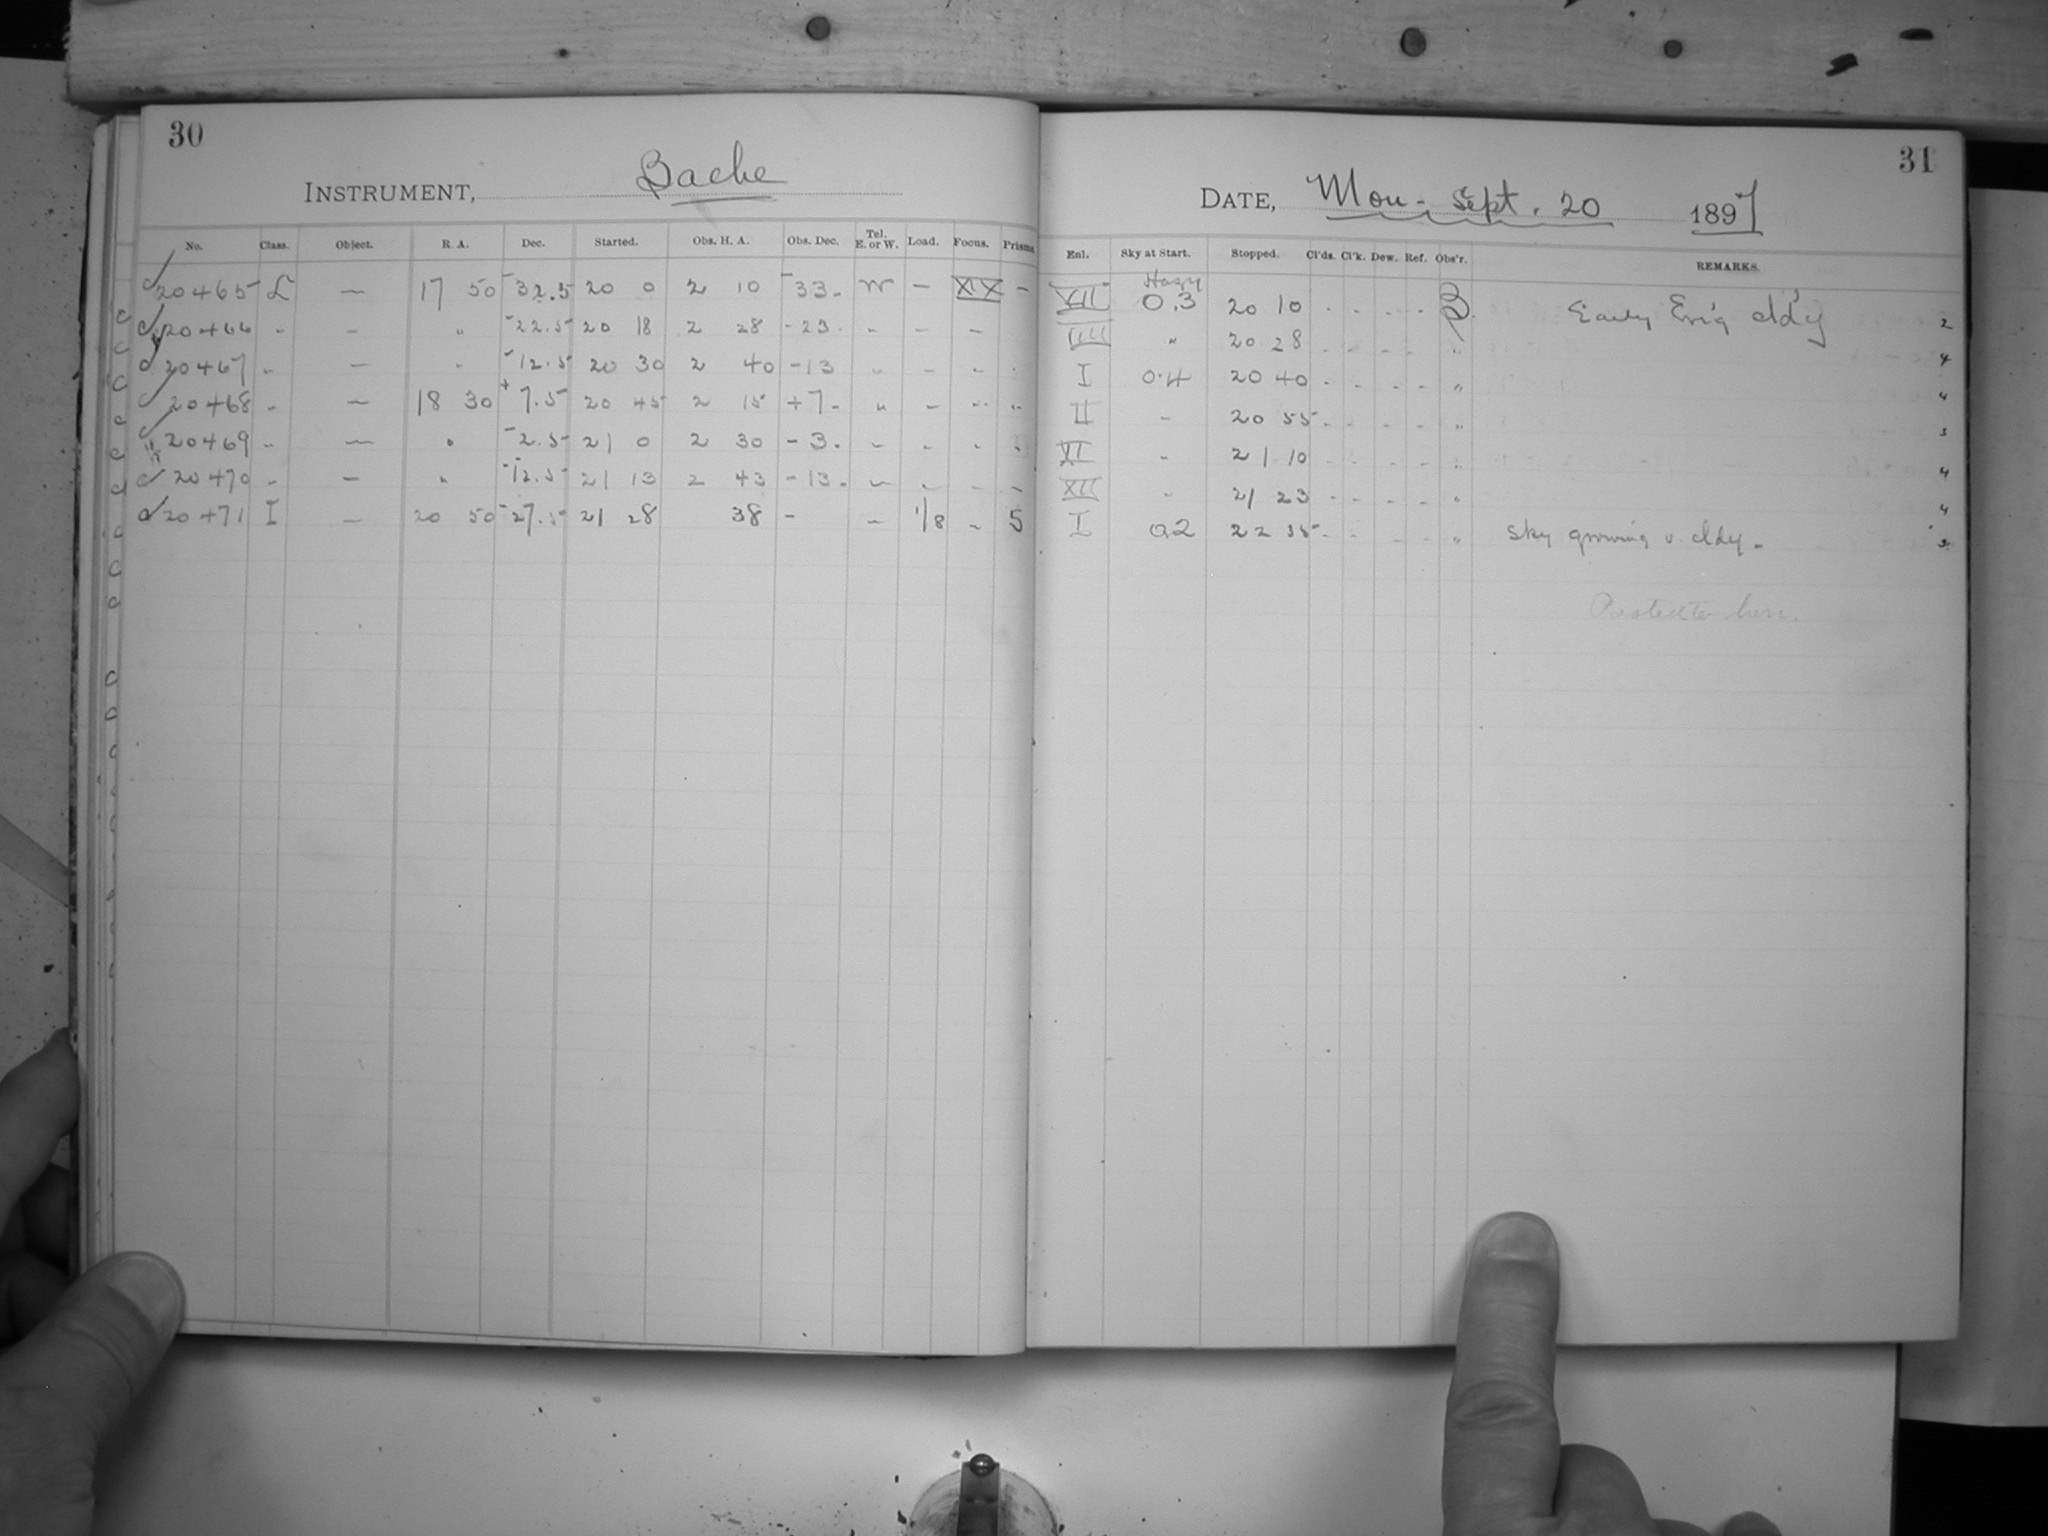 30
INSTRUMENT, Bache
No. Class. Object. R. A. Dec. Started. Obs. H. A. Obs. Dec. Tel. E. or W. Load. Focus. Prisms.
20465 L — 17 50 -32.5 20 0 2 10 -33. W — XIX —
20466 " - " -22.5 20 18 2 28 -23. " - -
20467 " — " -12.5 20 30 2 40 -13 " - " "
20468 " — 18 30 +7.5 20 45 2 15 +7. " - " "
20469 " — " -2.5 21 0 2 30 -3. " - " "
20470 " — " -12.5 21 13 2 43 -13. " - - -
20471 I — 20 50 -27.5 21 28 38 - " 1/8 " 5
31
DATE, Mon. Sept. 20 1897
Enl. Sky at Start. Stopped. Cl'ds. Cl'k. Dew. Ref. Obs'r. REMARKS.
XII Hazy 0.3 20 10 . . . . B. Early Ev'g cldy 2
" 20 28 . . . . " 4
I 0.4 20 40 . . . . " 4
II " 20 55 . . . . " 3
XI " 21 10 . . . . " 4
XII " 21 23 . . . . " 4
I 0.2 22 35 . . . . " Sky growing v. cldy. 3